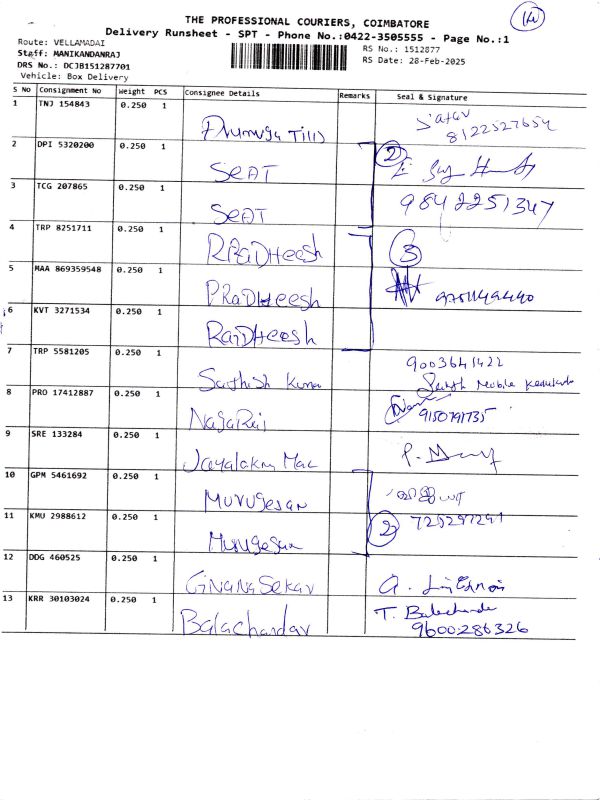 THE PROFESSIONAL COURIERS, COIMBATORE
Delivery Runsheet - SPT - Phone No.:0422-3505555 - Page No.:1
Route: VELLAMADAI
Staff: MANIKANDANRAJ
DRS No.: DCJB151287701
Vehicle: Box Delivery
RS No.: 1512877
RS Date: 28-Feb-2025
S No Consignment No Weight PCS Consignee Details Remarks Seal & Signature
1 TNJ 154843 0.250 1
8122527654
2 DPI 5320200 0.250 1 SEAT 2
3 TCG 207865 0.250 1 SEAT 9842251347
4 TRP 8251711 0.250 1 3
5 MAA 869359548 0.250 1 PRaDHeesh
6 KVT 3271534 0.250 1
7 TRP 5581205 0.250 1 Sathish Kumar 9003641422
8 PRO 17412887 0.250 1 NagaRaj 9150791735
9 SRE 133284 0.250 1
10 GPM 5461692 0.250 1 Murugesan
11 KMU 2988612 0.250 1 Murugesan 2
12 DDG 460525 0.250 1 GNANaSekar
13 KRR 30103024 0.250 1 Balachandar T. Balachander
9600286326